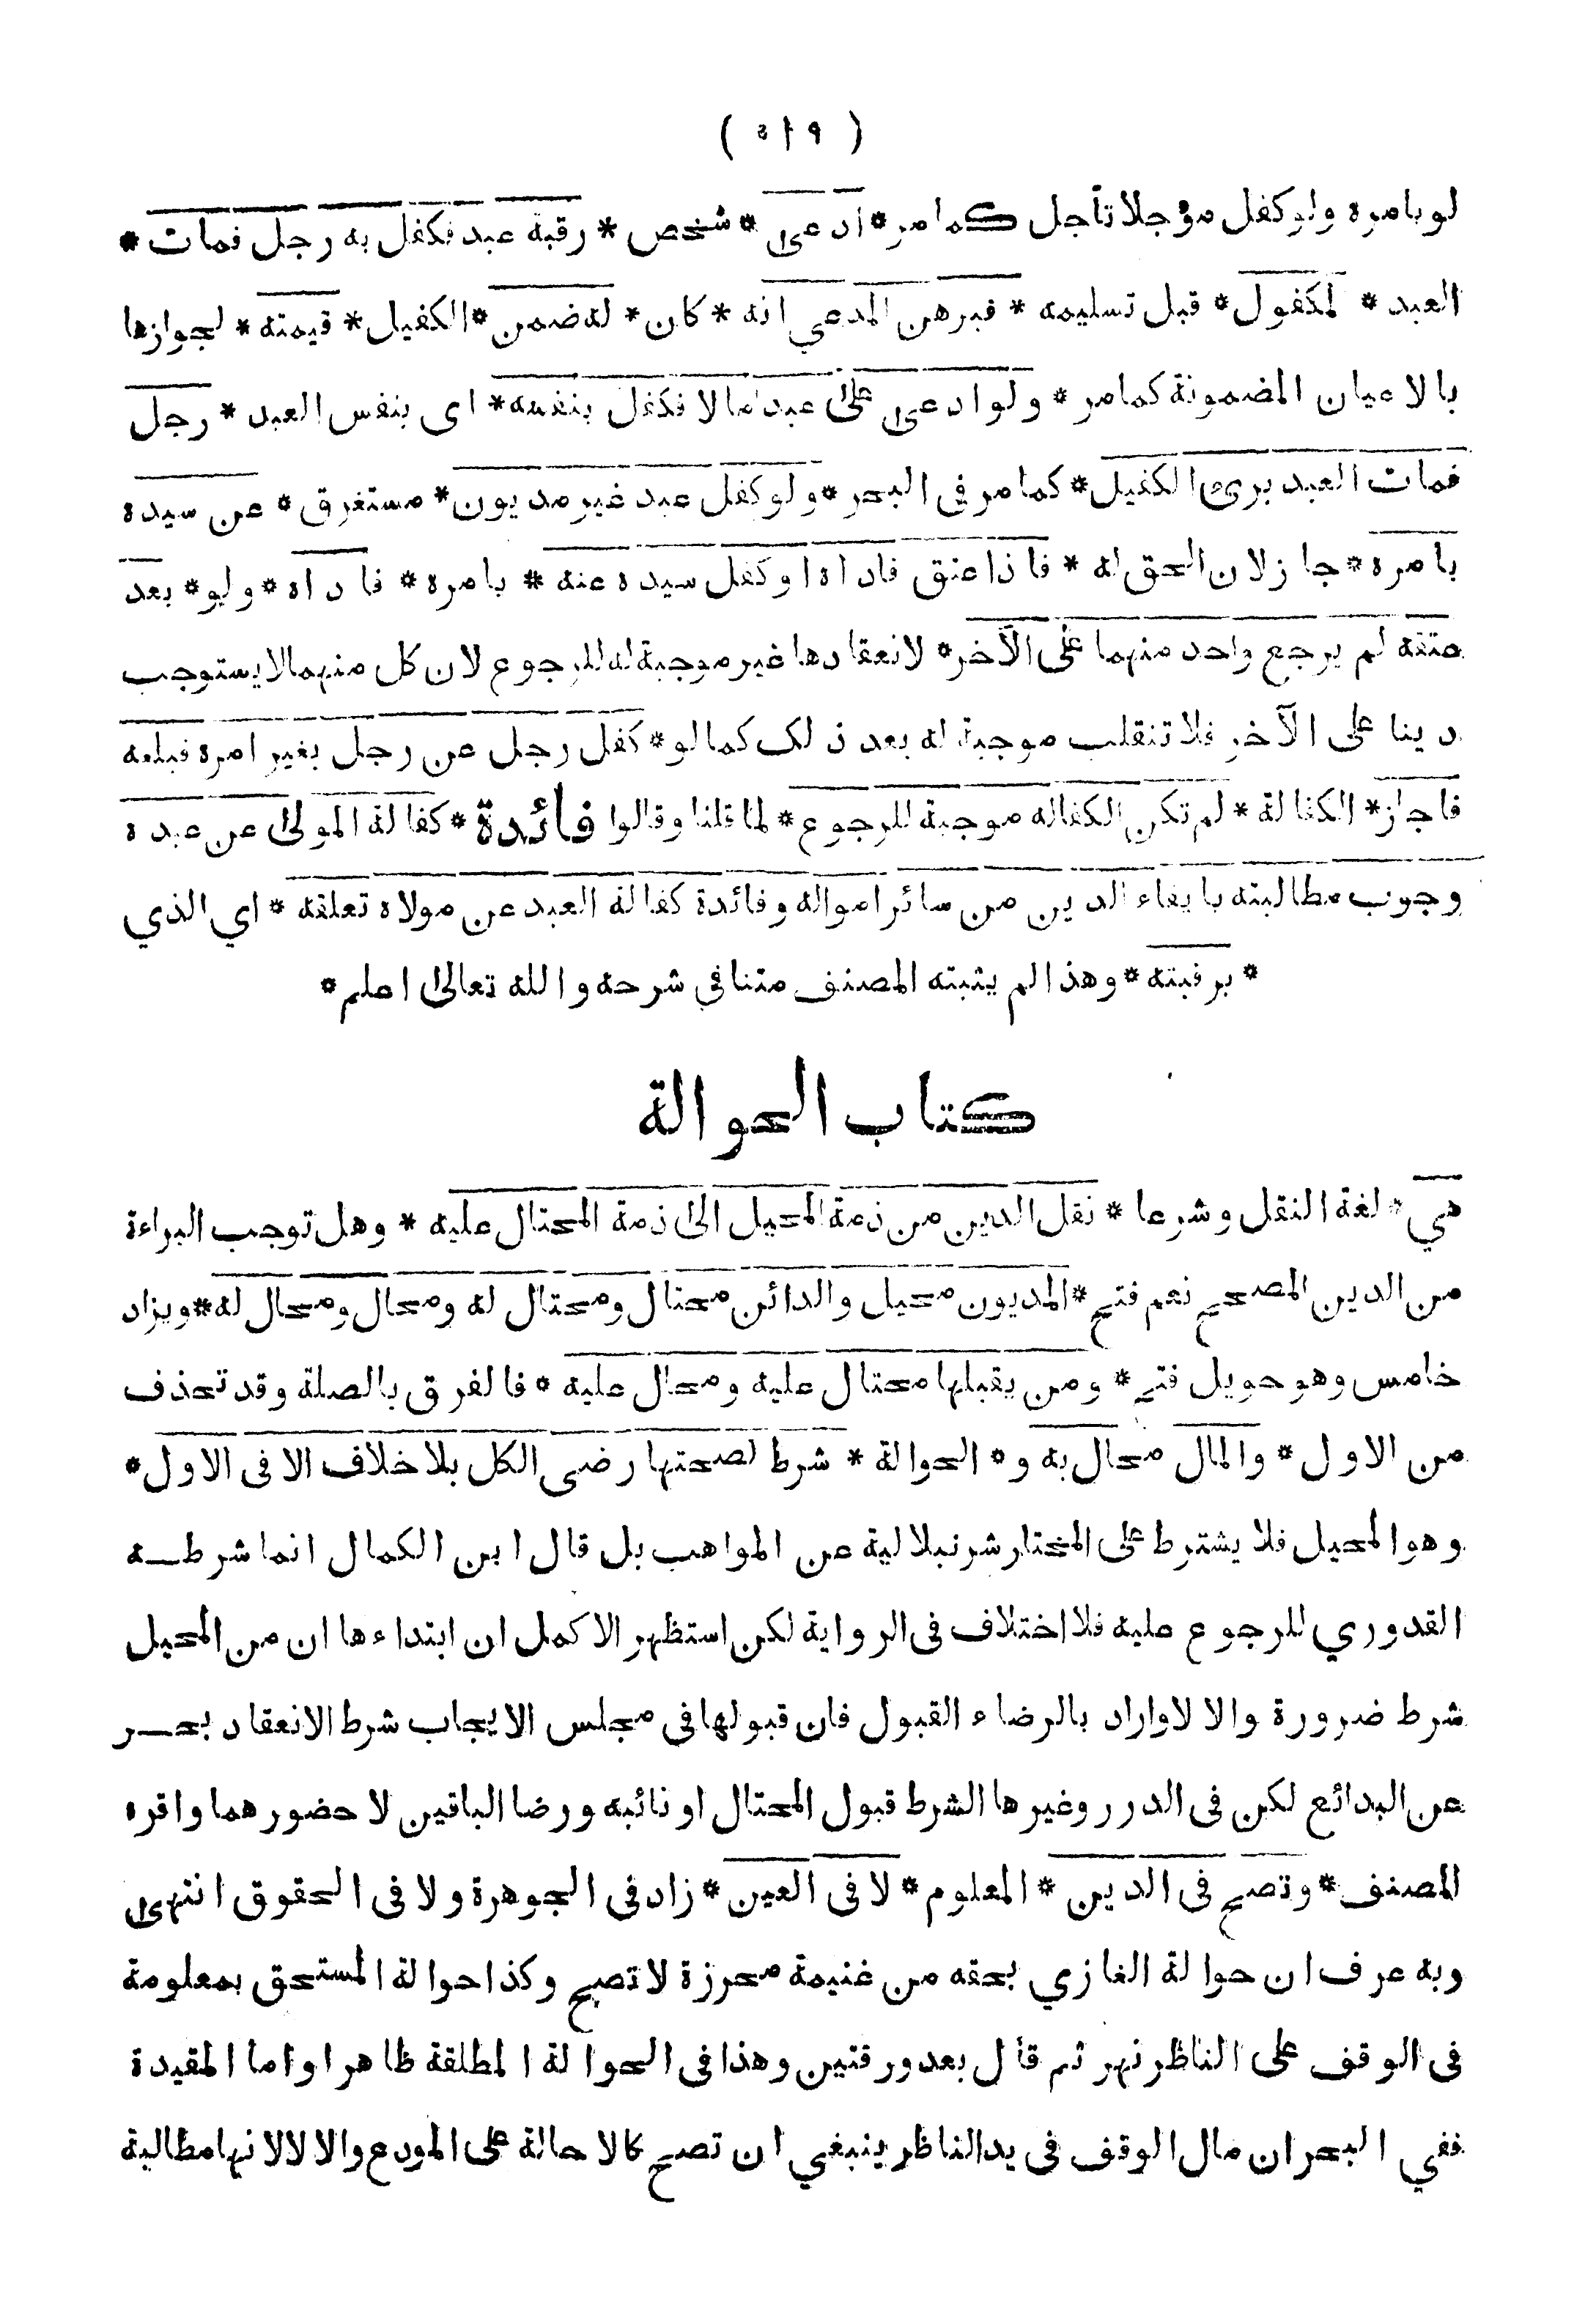 ( ٥١٩ )
لو بامره ولو كفل مؤجلا تأجل كما مر * ادعى * شخص * رقبة عبد فكفل به رجل فمات *
العبد * المكفول * قبل تسليمه * فبرهن المدعي انه * كان * له ضمن * الكفيل * قيمته * لجوازها
بالاعيان المضمونة كما مر * ولو ادعى على عبد مالا فكفل بنفسه * اى بنفس العبد * رجل
فمات العبد برئ الكفيل * كما مر في البحر * ولو كفل عبد غير مديون * مستغرق * عن سيده
بامره * جاز لان الحق له * فاذا عتق فاداه او كفل سيده عنه * بامره * فاداه * ولو * بعد
عتقه لم يرجع واحد منهما على الآخر * لانعقادها غير موجبة له للرجوع لان كل منهما لا يستوجب
دينا على الآخر فلا تنقلب موجبة له بعد ذلك كما لو * كفل رجل عن رجل بغير امره فبلغه
فاجاز * الكفالة * لم تكن الكفالة موجبة للرجوع * لما قلنا وقالوا فائدة * كفالة المولى عن عبده
وجوب مطالبته بايفاء الدين من سائر امواله وفائدة كفالة العبد عن مولاه تعلقه * اي الذي
* برقبته * وهذا لم يثبته المصنف متنا في شرحه والله تعالى اعلم *
كتاب الحوالة
هي * لغة النقل وشرعا * نقل الدين من ذمة المحيل الى ذمة المحتال عليه * وهل توجب البراءة
من الدين المصحح نعم فتح * المديون محيل والدائن محتال ومحتال له ومحال ومحال له * ويزاد
خامس وهو حويل فتح * ومن يقبلها محتال عليه ومحال عليه * فالفرق بالصلة وقد تحذف
من الاول * والمال محال به و * الحوالة * شرط لصحتها رضى الكل بلا خلاف الا فى الاول *
وهو المحيل فلا يشترط على المختار شرنبلالية عن المواهب بل قال ابن الكمال انما شرطه
القدوري للرجوع عليه فلا اختلاف فى الرواية لكن استظهر الاكمل ان ابتداءها ان من المحيل
شرط ضرورة والا لا واراد بالرضاء القبول فان قبولها فى مجلس الايجاب شرط الانعقاد بحر
عن البدائع لكن فى الدرر وغيرها الشرط قبول المحتال او نائبه ورضا الباقين لا حضورهما واقره
المصنف * وتصح فى الدين * المعلوم * لا فى العين * زاد فى الجوهرة ولا فى الحقوق انتهى
وبه عرف ان حوالة الغازي بحقه من غنيمة محرزة لا تصح وكذا حوالة المستحق بمعلومة
فى الوقف على الناظر نهر ثم قال بعد ورقتين وهذا فى الحوالة المطلقة ظاهر واما المقيدة
ففي البحر ان مال الوقف فى يد الناظر ينبغي ان تصح كالاحالة على المودع والا لا لانها مطالبة